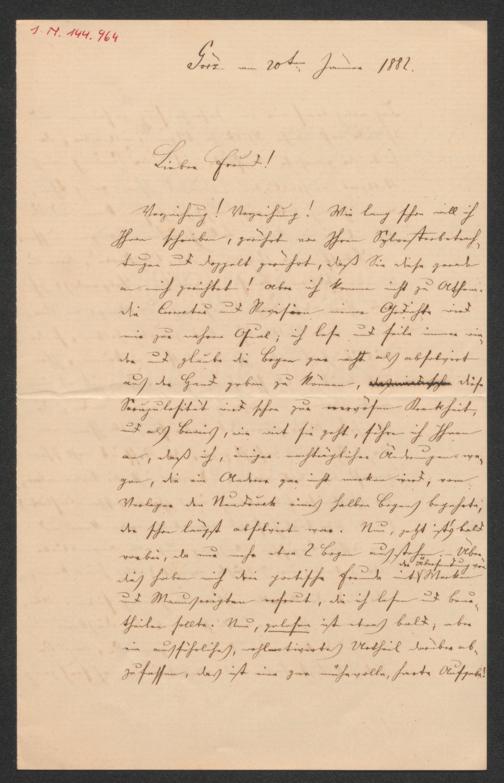 I. N. 144.964
Görz am 20ten Jänner 1882.
Lieber Freund!
Verzeihung! Verzeihung! Wie lang schon will ich
Ihnen schreiben, gerührt von Ihren Sylvesterbetrach-
tungen und doppelt gerührt, daß Sie diese gerade
an mich gerichtet! aber ich komme nicht zu Athem.
die Correctur und Revision meiner Gedichte wird
mir zur wahren Qual; ich lese und feile immer wie-
der und glaube die Bogen gar nicht als absolvirt
aus der Hand geben zu können, diese
Scrupulosität wird schon zur nervösen Krankheit,
und als Beweis, wie weit sie geht, führe ich Ihnen
an, daß ich, einiger nachträglicher Änderungen we-
gen, die ein Anderer gar nicht merken wird, vom
Verleger den Neudruck eines halben Bogens begehrte,
der schon längst absolvirt war. Nun, jetzt ists bald
vorbei, da nur mehr etwa 2 Bogen ausstehen. – Über-
dies haben mich drei poetische Freunde mit der Übersendung von Werken
und Manuscripten erfreut, die ich lesen und beur-
theilen sollte: Nun, gelesen ist etwas bald, aber
ein ausführliches, wohlmotivirtes Urtheil darüber ab-
zufassen, das ist eine gar mühevolle, harte Aufgabe!